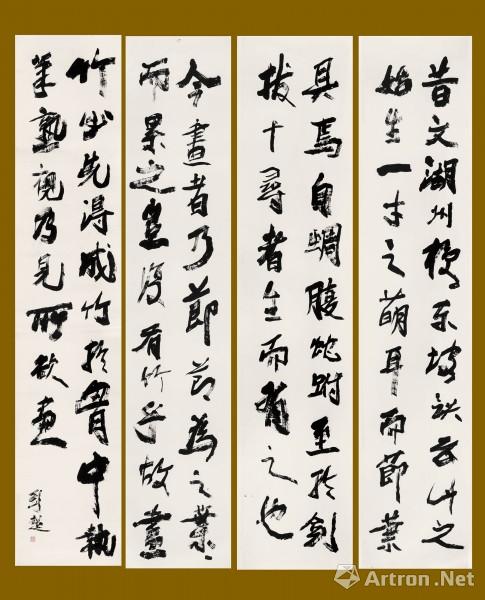 昔文湖州授东坡诀云竹之
始生一寸之萌耳而節葉
具焉自蜩腹蛇蚹至於劍
拔十尋者生而有之也
今畫者乃節節為之葉葉
而累之豈復有竹乎故畫
竹必先得成竹於胸中執
筆熟視乃見所欲畫
Artron.Net